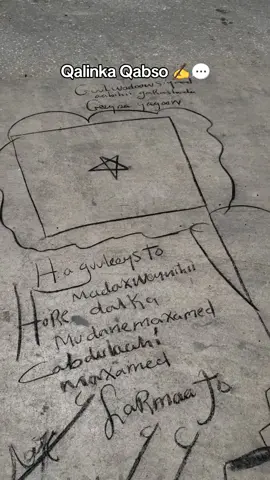 Qalinka Qabso ✍️💬
Guulwadaows
Geeyaa yagoow
Ha guuleeysto
Madaxweynihii
HoRe dalka
Mudane maxamed
Cabdulaahi
maxamed
FaRmaaJo